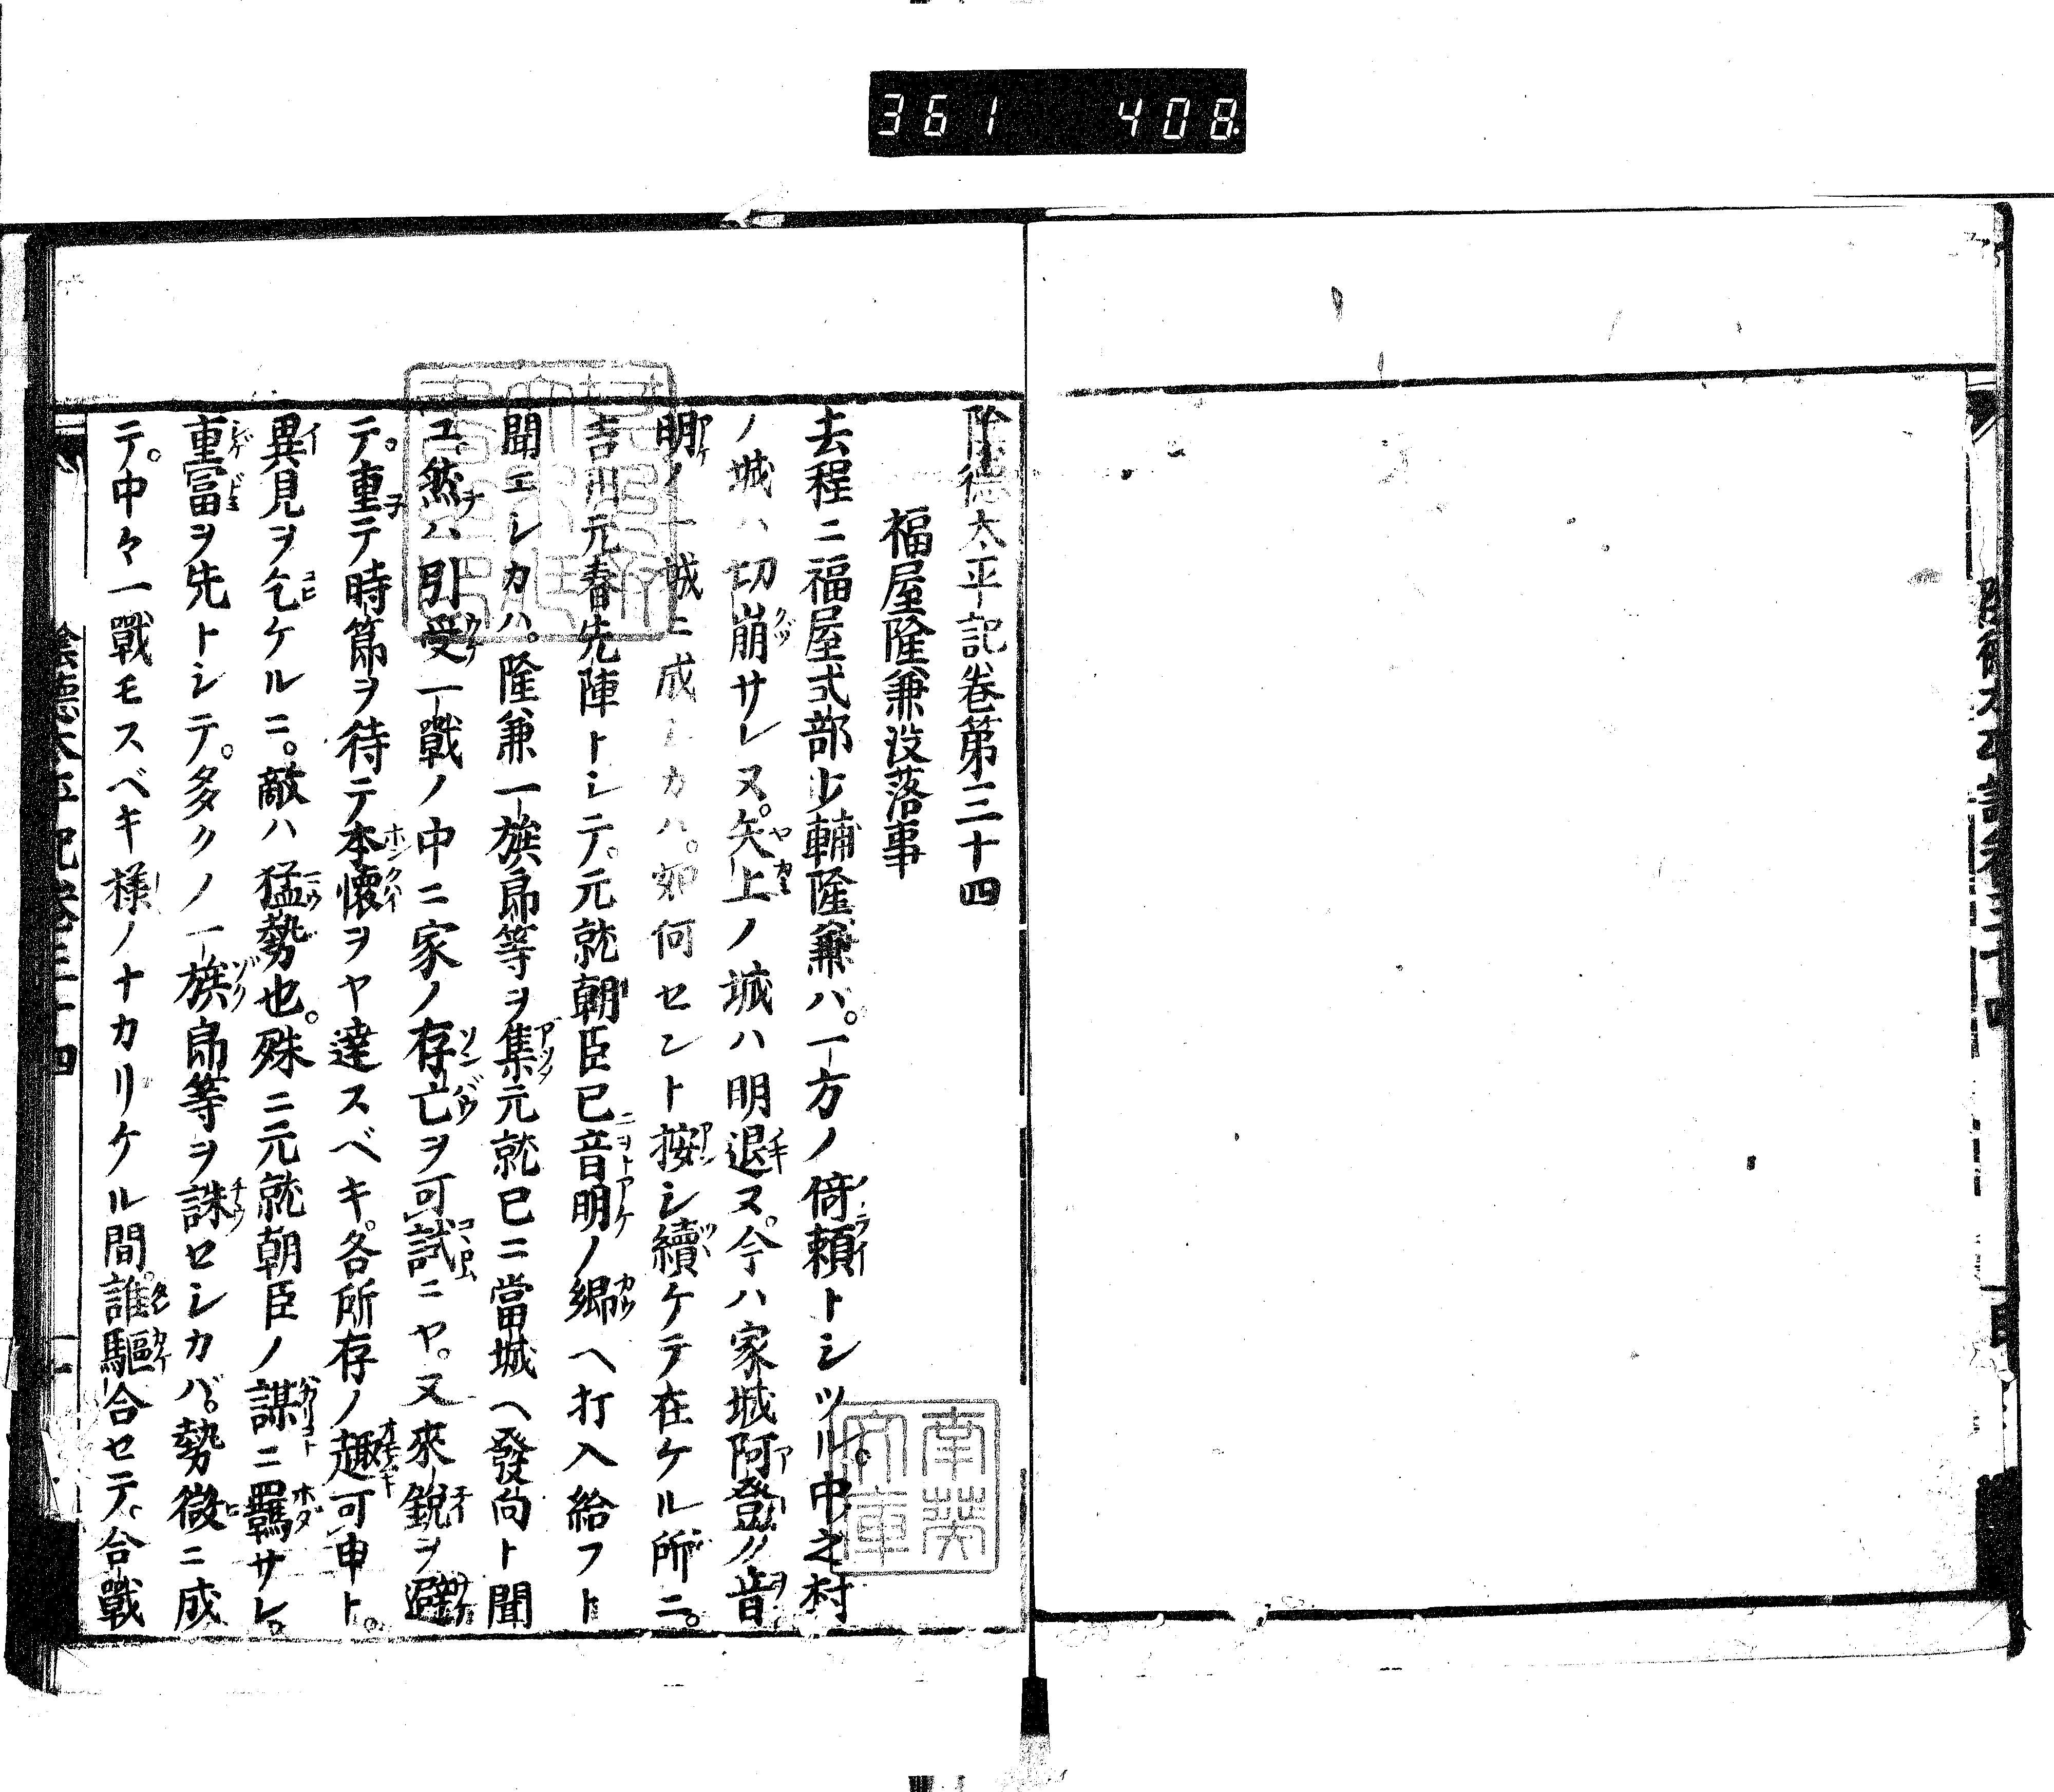 361 408
陰徳太平記巻第三十四
福屋隆兼没落事
去程ニ福屋式部少輔隆兼ハ。一方ノ倚頼トシツル。中之村
ノ城ハ切崩サレヌ。矢上ノ城ハ明退ヌ。今ハ家城阿登ノ音
明ノ一城ニ成シカハ。如何セント按シ續ケテ在ケル所ニ。
吉川元春先陣トシテ。元就朝臣已音明ノ郷ヘ打入給フト
聞エシカハ。隆兼一族郎等ヲ集元就已ニ當城ヘ發向ト聞
ユ。然ハ引受一戰ノ中ニ家ノ存亡ヲ可試ニヤ。又來鋭ヲ避
テ。重テ時節ヲ待テ本懷ヲヤ達スベキ。各所存ノ趣可申ト。
異見ヲ乞ケルニ。敵ハ猛勢也。殊ニ元就朝臣ノ謀ニ羈サレ。
重富ヲ先トシテ。多クノ一族郎等ヲ誅セシカバ。勢微ニ成
テ。中々一戰モスベキ様ノナカリケル間。誰驅合セテ。合戰
陰徳太平記巻三十四